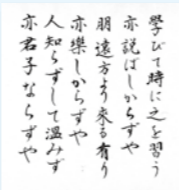 學びて時に之を習う
亦説ばしからずや
朋遠方より來る有り
亦樂しからずや
人知らずして溫みず
亦君子ならずや